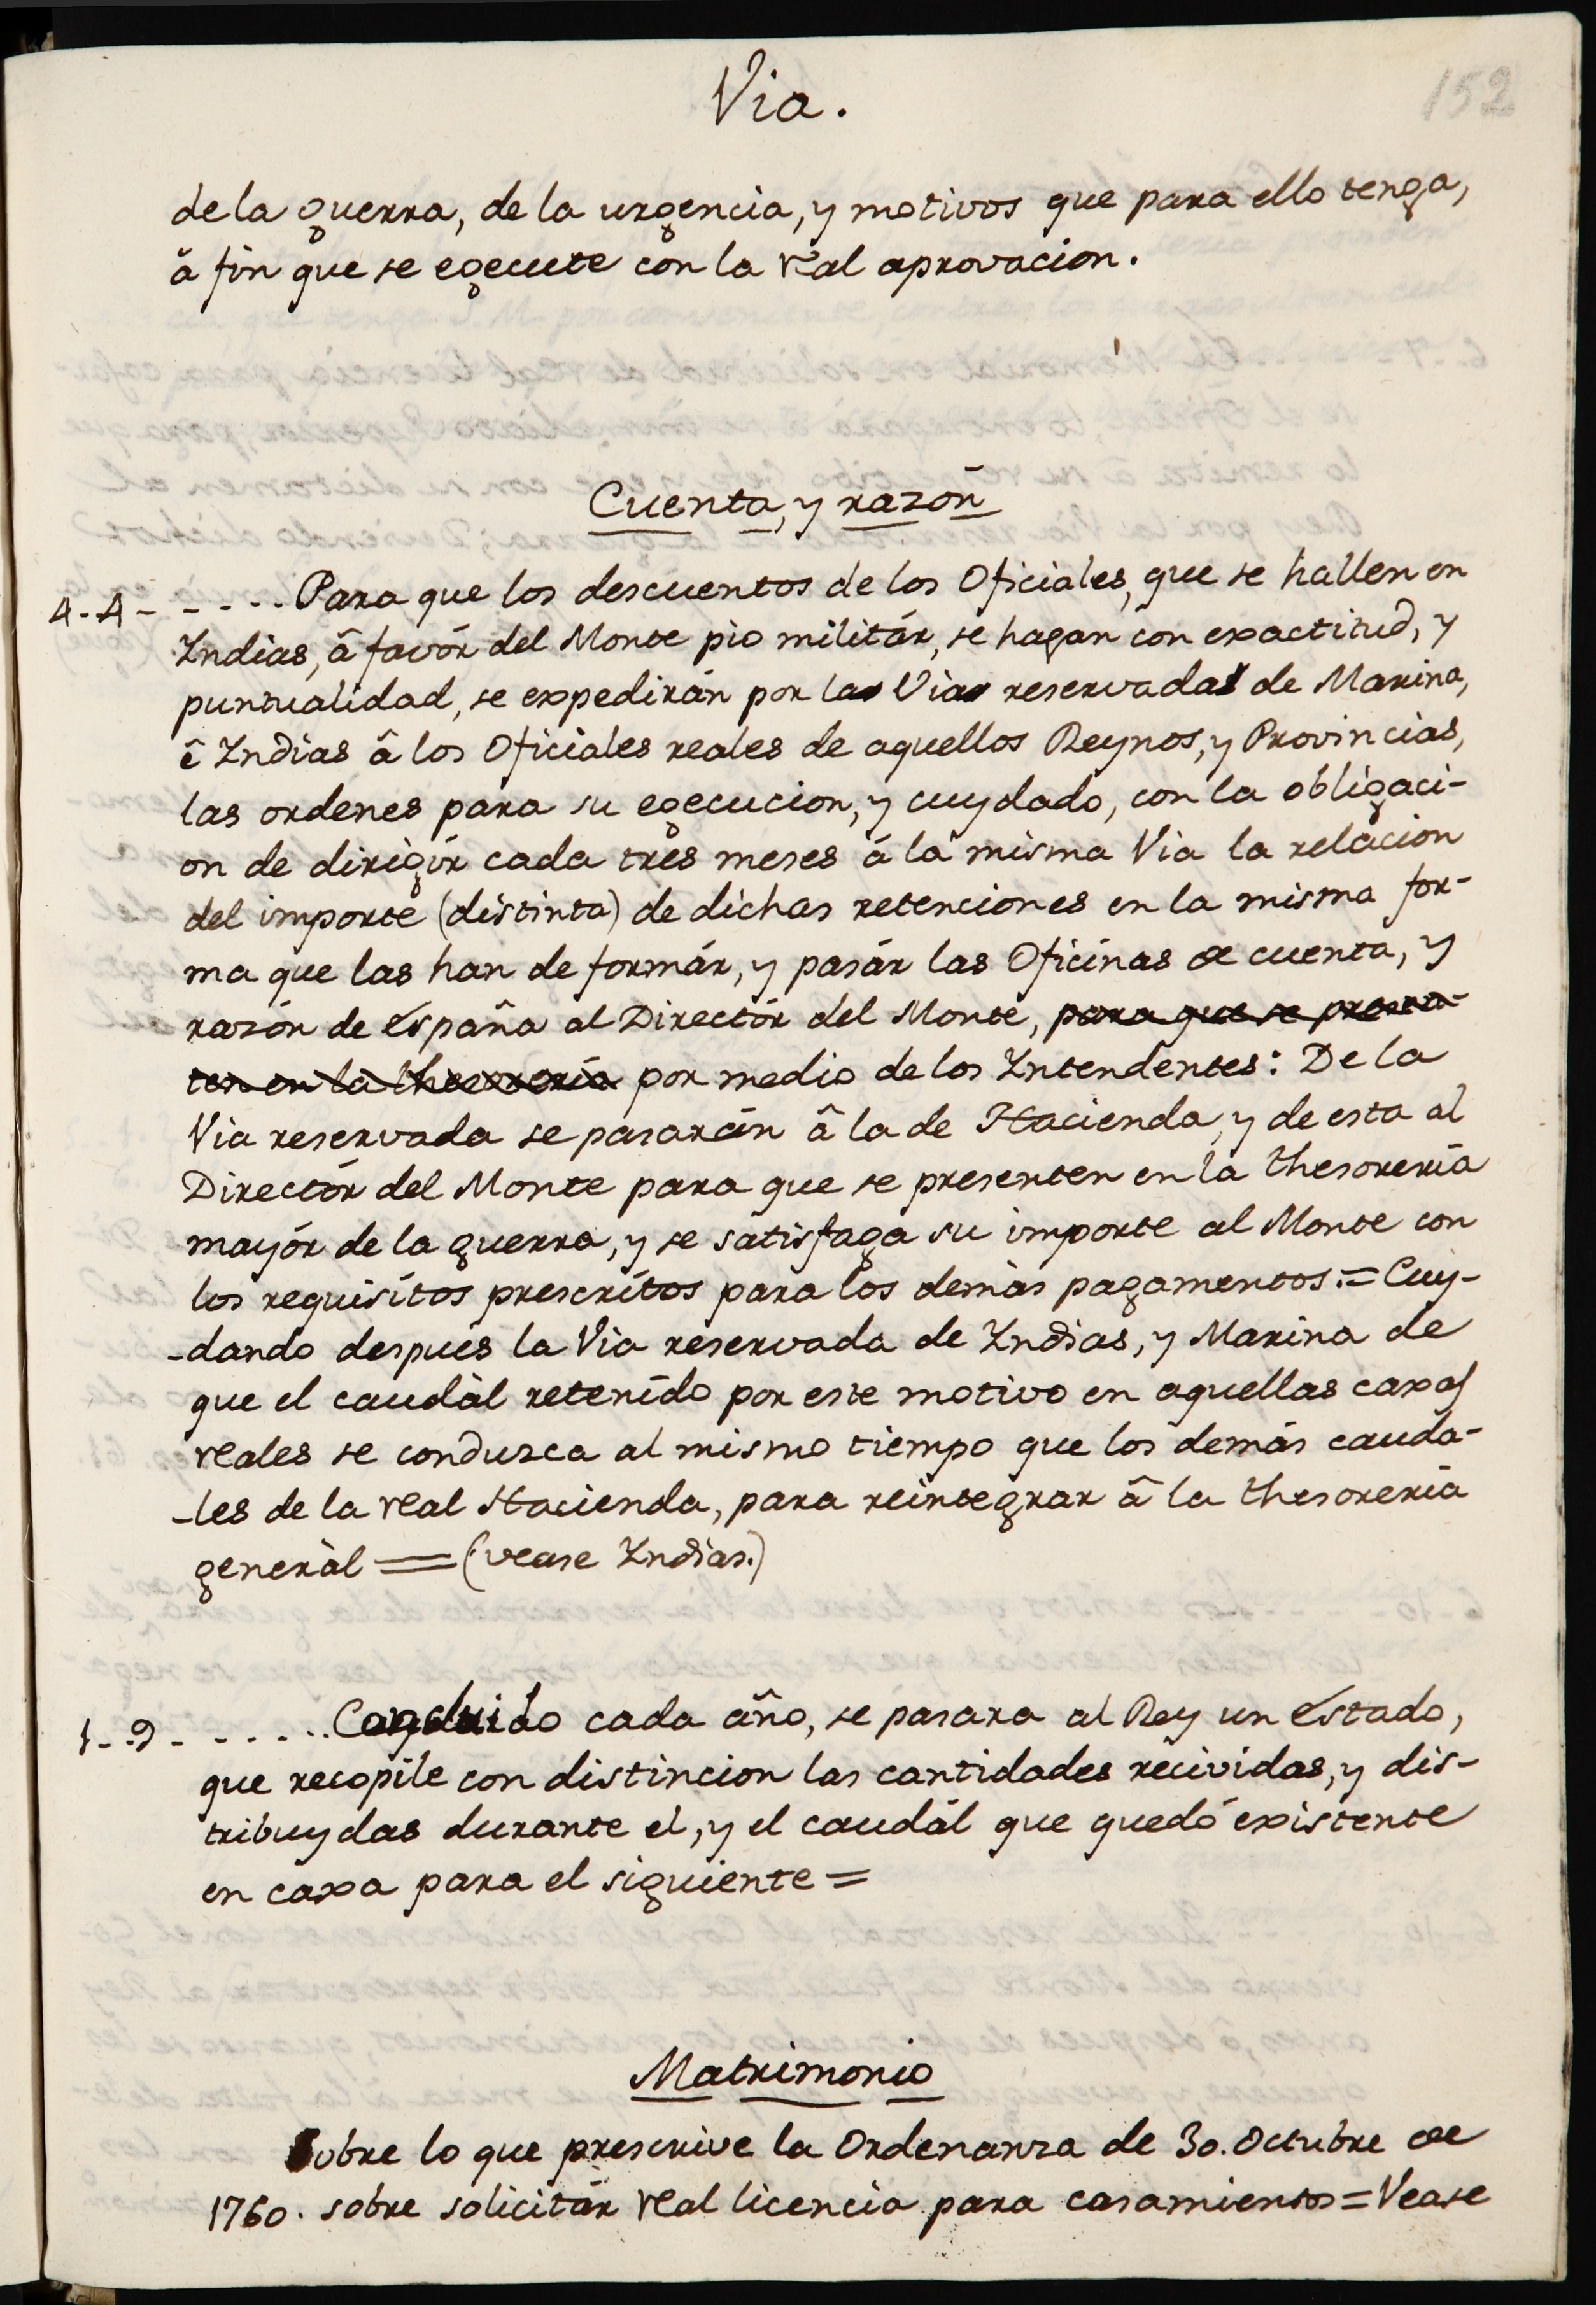 Via.
152
de la guerra, de la urgencia, y motivos que para ello tenga,
â fin que se egecute con la real aprovacion.
Cuenta, y razón
4-4- - - - - Para que los descuentos de los Oficiales, que se hallen en
Indias, â favór del Monte pio militár, se hagan con exactitud, y
puntualidad, se expedirán por las Vias reservadas de Marina,
ê Indias â los Oficiales reales de aquellos Reynos, y Provincias,
las ordenes para su egecucion, y cuydado, con la obligaci-
on de dirigír cada tres meses á la misma Via la relacion
del importe (distinta) de dichas retenciones en la misma for-
ma que las han de formár, y pasár las Oficinas de cuenta, y
razón de España al Directór del Monte, para que se presen-
ten en la thesoreria por medio de los Intendentes: De la
Via reservada se pasarán â la de Hacienda, y de esta al
Directór del Monte para que se presenten en la thesorería
mayór de la guerra, y se satisfaga su importe al Monte con
los requisítos prescrítos para los demàs pagamentos.= Cuy-
-dando despues la Via reservada de Indias, y Marina de
que el caudàl retenído por este motivo en aquellas caxas
reales se conduzca al mismo tiempo que los demás cauda-
-les de la real Hacienda, para reintegrar â la thesorería
generàl = (vease Indias.)
1-9- - - - - Concluido cada año, se pasara al Rey un Estado,
que recopile con distincion las cantidades recividas, y dis-
tribuydas durante el, y el caudál que quedó existente
en caxa para el siguiente =
Matrimonio
Sobre lo que prescrive la Ordenanza de 30. Octubre de
1760. sobre solicitár real licencia para casamientos = Vease